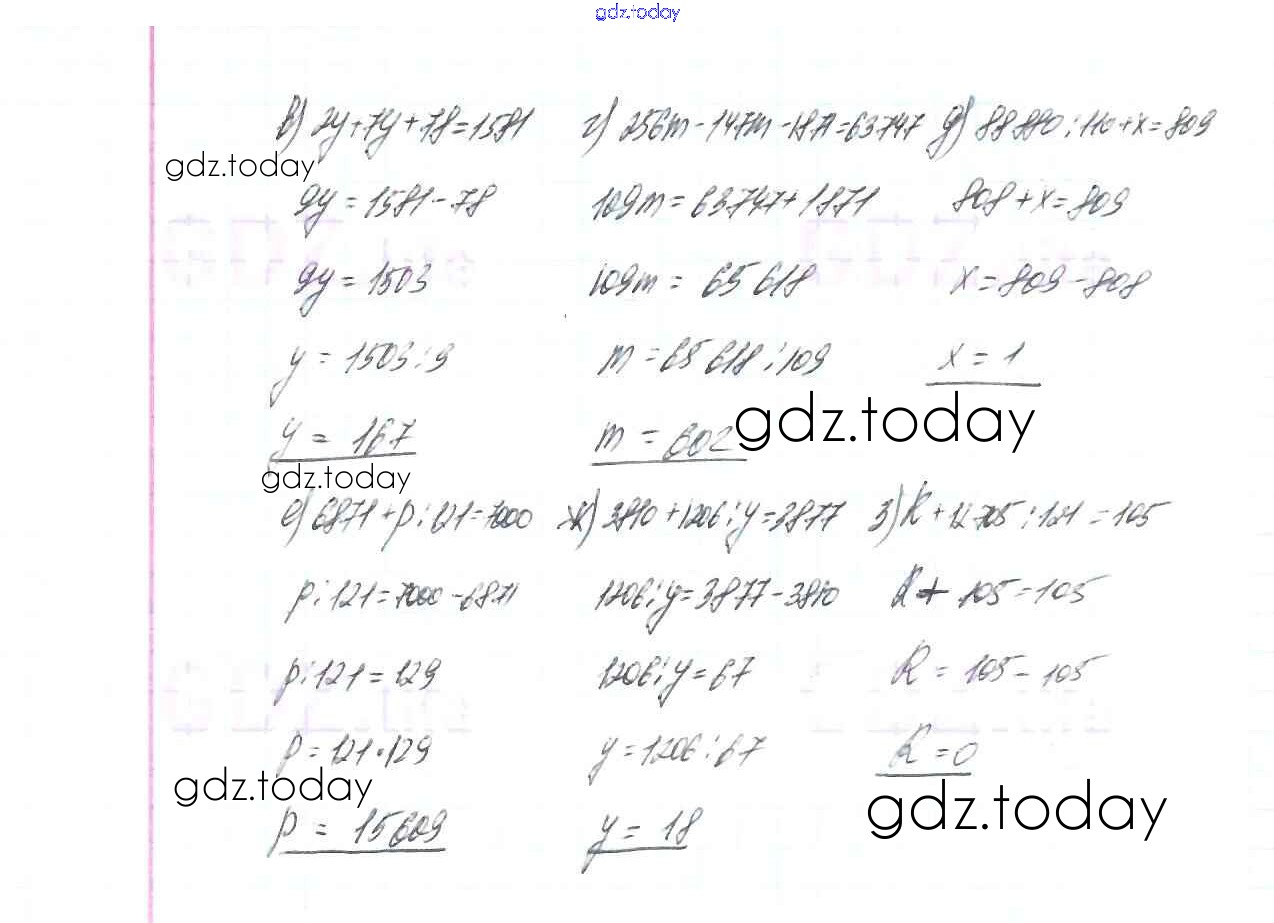 gdz.today
в) 2y+7y+78=1581
9y=1581-78
9y=1503
y=1503:9
y=167
г) 256m-147m-1871=63747
109m=63747+1871
109m=65618
m=65618:109
m=602
д) 88880:110+x=809
808+x=809
x=809-808
x=1
е) 6871+p:121=7000
p:121=7000-6871
p:121=129
p=121·129
p=15609
ж) 3810+1206:y=3877
1206:y=3877-3810
1206:y=67
y=1206:67
y=18
з) K+12705:121=105
K+105=105
K=105-105
K=0
gdz.today
gdz.today
gdz.today
gdz.today
gdz.today